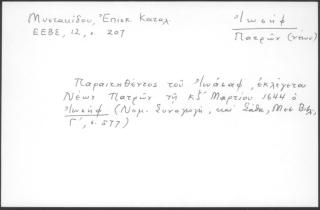 Μυστακίδου, Ἐπισκ Καταλ.
ΕΕΒΣ, 12, σ. 207
Ἰωσήφ
Πατρῶν (νέων)
Παραιτηθέντος τοῦ Ἰωάσαφ, ἐκλέγεται
Νέων Πατρῶν τῇ κζ' Μαρτίου 1644 ὁ
Ἰωσήφ (Νομ. Συναγωγή, καὶ Σάθα, Μεσ Βιβλ,
Γ', σ. 577)